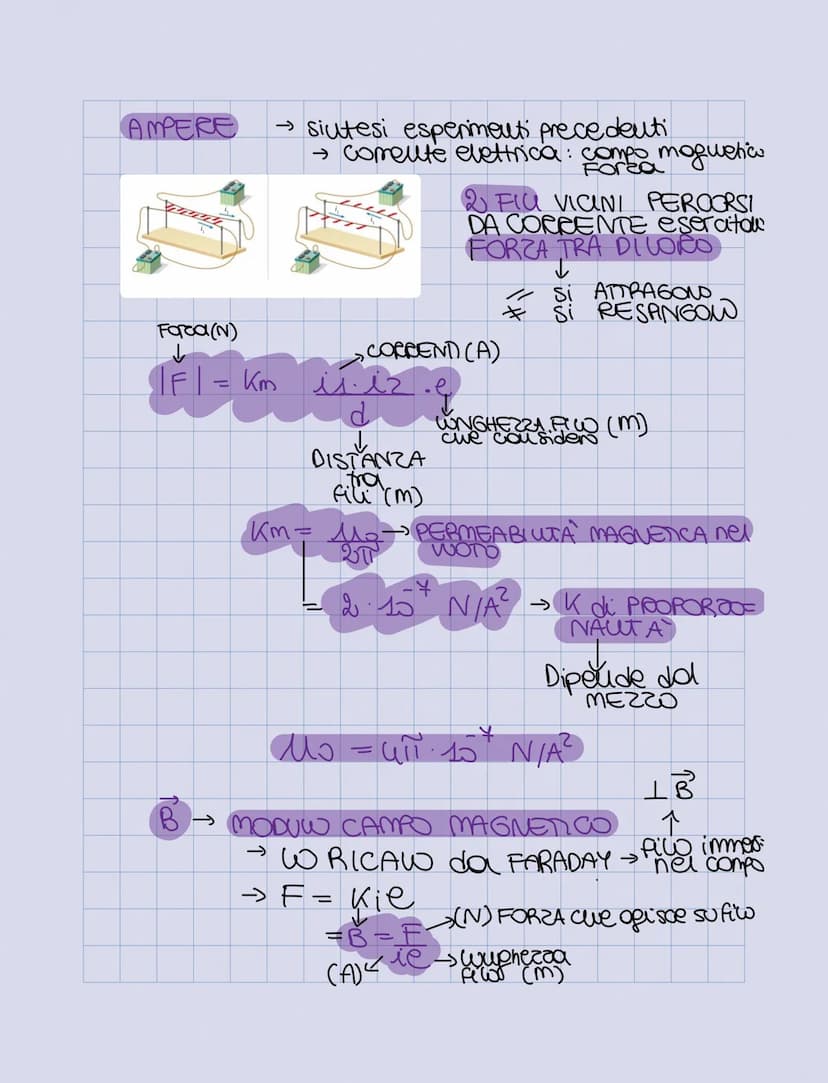 AMPERE → sintesi esperimenti precedenti
→ corrente elettrica: campo magnetico
Forza
2 FILI VICINI PERCORSI
DA CORRENTE esercitano
FORZA TRA DI LORO
↓
= si ATTRAGONO
≠ si RESPINGONO
Forza (N)
↓
CORRENTI (A)
|F| = Km i1·i2 / d · l
LUNGHEZZA FILO (M)
che considero
DISTANZA
tra
fili (m)
Km = μ0 / 2π → PERMEABILITÀ MAGNETICA nel
VUOTO
= 2 · 10⁻⁷ N/A² → K di PROPORZIO=
NALITÀ
↓
Dipende dal
MEZZO
μ0 = 4π · 10⁻⁷ N/A²
⊥ B⃗
B⃗ → MODULO CAMPO MAGNETICO
↑
→ LO RICAVO da FARADAY → FILO immers
nel campo
→ F = Kil
= B = F / il
→ (N) FORZA che agisce su filo
(A) → lunghezza
filo (m)